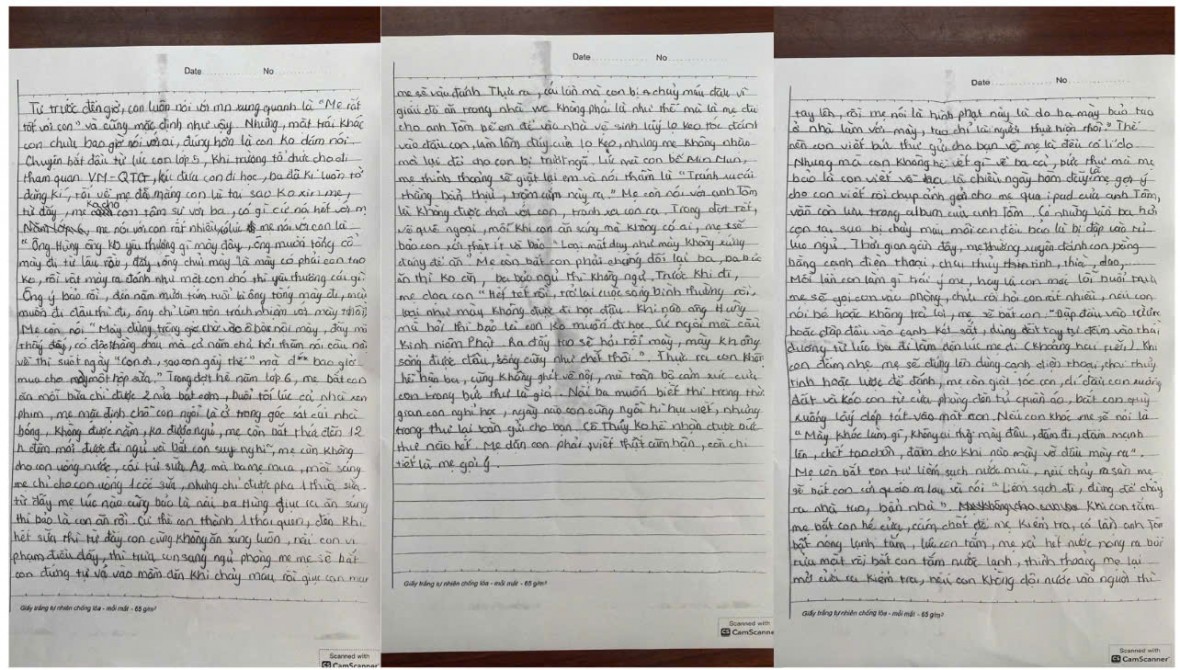 Date No
Từ trước đến giờ, con luôn nói với mn xung quanh là "Mẹ rất
tốt với con" và cũng mặc định như vậy. Nhưng, mặt trái khác
con chưa bao giờ nói với ai, đúng hơn là con ko dám nói.
Chuyện bắt đầu từ lúc con lớp 5, khi trường tổ chức cho đi
tham quan VM-QTG, lúc đưa con đi học, ba đã kí luôn tờ
đăng kí, rồi về mẹ đã mắng con là tại sao ko xin mẹ,
từ đấy, mẹ ko cho con tâm sự với ba, có gì cứ nói hết với m
mẹ nói với con rất nhiều mẹ nói với con là
"Ông Hùng ông ko yêu thương gì mày đâu, ông muốn tống cổ
mày đi từ lâu rồi, đấy, ông chửi mày là mày có phải con tao
ko, rồi vật mày ra đánh như một con chó thì yêu thương cái gì.
Ông ý bảo rồi, đến năm mười tám tuổi là ông tống mày đi, mày
muốn đi đâu thì đi, ông chỉ làm tròn trách nhiệm với mày thôi"
Mẹ còn nói "Mày đừng trông gì chờ vào ô bà nội mày, đấy mà
thấy đấy, có đẻo tháng đâu mà cả năm chả hỏi thăm nổi câu nào
về thì suốt ngày "Con ơi, sao con gầy thế" mà đ** bao giờ
mua cho mày một hộp sữa." Trong đợt hè năm lớp 6, mẹ bắt con
ăn mỗi bữa chỉ được 2 nửa bát cơm, buổi tối lúc cả nhà xem
phim, mẹ mặc định chỗ con ngồi là ở trong góc sát cửi nhà
bóng, không được nằm, ko được ngủ, mẹ còn bắt thức đến 12
h đêm mới được đi ngủ và bắt con suy nghĩ, mẹ còn không
cho con uống nước, cái túi sữa A2 mà ba mẹ mua, mỗi sáng
mẹ chỉ cho con uống 1 cốc sữa, nhưng chỉ được pha 1 thìa sữa
từ đấy mẹ lúc nào cũng bảo là nếu ba Hùng giục ra ăn sáng
thì bảo là con ăn rồi. Cứ thế con thành 1 thói quen, đến khi
hết sữa thì từ đấy con cũng không ăn sáng luôn, nếu con vi
phạm điều đấy, thì trưa con sang ngủ phòng mẹ mẹ sẽ bắt
con đứng tự vả vào mồm đến khi chảy máu rồi giục con mau
Giấy trắng tự nhiên chống lóa - mỏi mắt - 65 g/m²
Scanned with
CS CamScanner
Date No
mẹ sẽ vào đánh. Thực ra, cái lần mà con bị chảy máu đầu vì
giấu đồ ăn trong nhà wc không phải là như thế mà là mẹ đã
cho anh Tôm bế em để vào nhà vệ sinh lấy lọ keo tóc đánh
vào đầu con, làm lõm đáy của lọ keo, nhưng mẹ không nhận
mà lại đổ cho con bị trượt ngã, lúc nơi con bế Bin Mun,
mẹ thỉnh thoảng sẽ giật lại em và nói thầm là "Tránh cái
thằng bần thỉu, trộm cắm này ra." Mẹ còn nói với anh Tôm
là không được chơi với con, tránh xa con ra. Trong đợt Tết,
về quê ngoại, mỗi khi con ăn sáng mà không có ai, mẹ sẽ
bảo con ăn thật ít và bảo "Loại mất dạy như mày không xứng
đáng để ăn". Mẹ còn bắt con phải chống đối lại ba, ba bảo
ăn thì ko ăn, ba bảo ngủ thì không ngủ. Trước khi đi,
mẹ dọa con "hết Tết rồi, trở lại cuộc sống bình thường rồi,
loại như mày không được đi học đâu. Khi nào ông Hùng
mà hỏi thì bảo là con ko muốn đi học. Cứ ngồi mà cầu
kinh niệm Phật. Ra đấy tao sẽ hỏi tội mày, mày không
sống được đâu, sống cũng như chết thôi". Thực ra con không
hề hận ba, cũng không ghét về nội, mà toàn bộ cảm xúc của
con trong bức thư là giả. Nếu ba muốn biết thì trong thời
gian con nghỉ học, ngày nào con cũng ngồi hì hục viết, nhưng
trong thư lại toàn gửi cho bạn. Cô Thủy ko hề nhận được bức
thư nào hết. Mẹ dặn con phải viết thật căm hận, còn chi
tiết là mẹ gợi ý.
Giấy trắng tự nhiên chống lóa - mỏi mắt - 65 g/m²
Scanned with
CS CamScanne
Date No
tay lên, rồi mẹ nói là hình phạt này là do ba mày bảo tao
ở nhà làm với mày, tao chỉ là người thực hiện thôi". Thế
nên con viết bức thư gửi cho bạn về mẹ là đều có lí do.
Nhưng mà con không hề viết gì về ba cả, bức thư mà mẹ
bảo là con viết về ba là chiều ngày hôm đấy mẹ gợi ý
cho con viết rồi chụp ảnh gửi cho mẹ qua ipad của anh Tôm,
vẫn còn lưu trong album của anh Tôm. Có những lần ba hỏi
con tại sao bị chảy máu môi con đều bảo là bị dập vào tủ
lúc ngủ. Thời gian gần đây, mẹ thường xuyên đánh con bằng
bằng cạnh điện thoại, chai thủy tinh, thìa, dao,
Mỗi lần con làm gì trái ý mẹ, hay là con mắc lỗi buổi trưa
mẹ sẽ gọi con vào phòng, chửi rồi hỏi con rất nhiều, nếu con
nói bé hoặc không trả lời, mẹ sẽ bắt con "Đập đầu vào tường
hoặc đập đầu vào cạnh két sắt, dùng đốt tay tự đấm vào thái
dương từ lúc ba đi làm đến lúc mẹ đi (Khoảng hai rưỡi). Khi
con đấm nhẹ, mẹ sẽ đứng lên dùng cạnh điện thoại, chai thủy
tinh hoặc lược để đánh, mẹ còn giật tóc con, dí đầu con xuống
đất và kéo con từ cửa phòng đến tủ quần áo, bắt con quỳ
xuống lấy dép tát vào mặt con. Nếu con khóc mẹ sẽ nói là
"Mày khóc làm gì, không ai thấy mày đâu, đấm đi, đấm mạnh
lên, chết tao chôn, đấm cho khi nào máy vỡ đầu máy ra".
Mẹ còn bắt con tự liếm sạch nước mũi, nếu chảy ra sàn mẹ
sẽ bắt con cởi quần áo ra lau và nói "Liếm sạch đi, đừng để chảy
ra nhà tao, bẩn nhà". Khi con tắm
mẹ bắt con hé cửa, cấm chốt để mẹ kiểm tra, có lần anh Tôm
bật nóng lạnh tắm, lúc con tắm, mẹ xả hết nước nóng ra bồn
rửa mặt rồi bắt con tắm nước lạnh, thỉnh thoảng mẹ lại
mở cửa ra kiểm tra, nếu con không dội nước vào người thì
Giấy trắng tự nhiên chống lóa - mỏi mắt - 65 g/m²
Scanned with
CS CamScanner